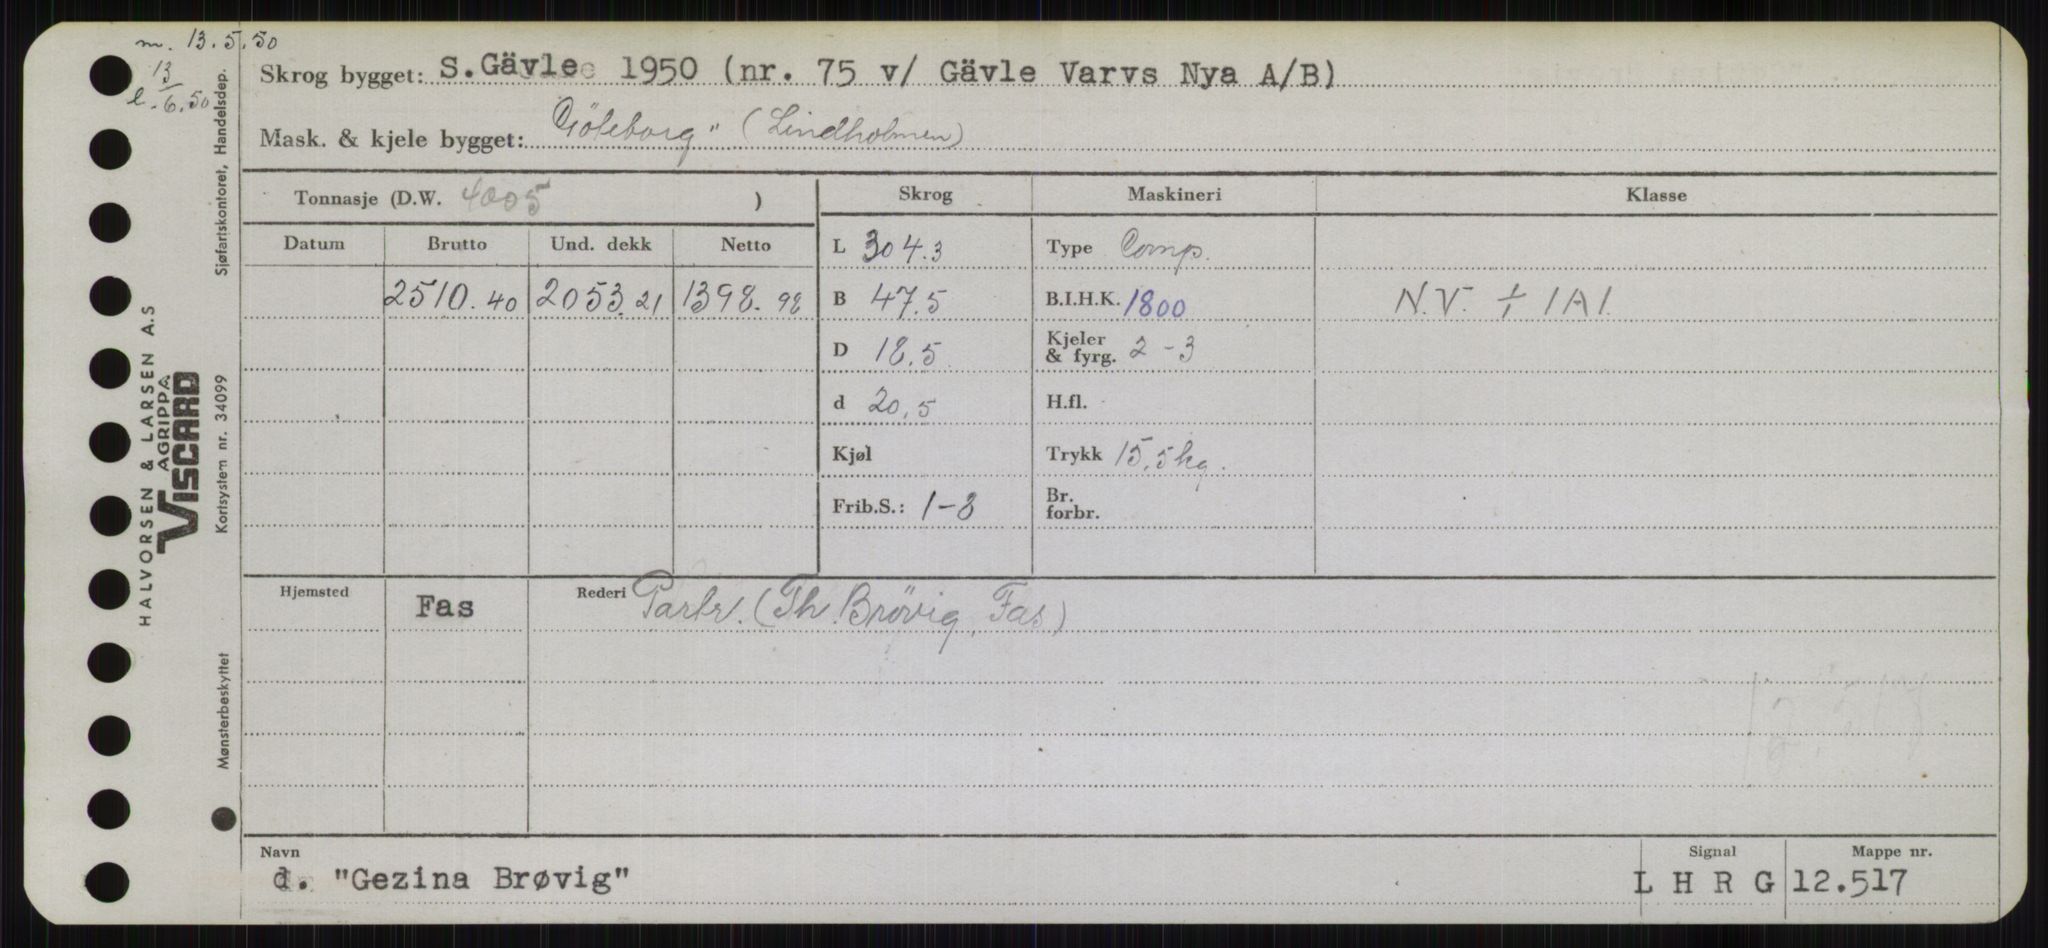 m. 13.5.50
13
l. 6.50
Skrog bygget: S.Gävle 1950 (nr. 75 v/ Gävle Varvs Nya A/B)
Mask. & kjele bygget: Göteborg " (Lindholmen)
Tonnasje (D.W. 4005 )
Skrog Maskineri Klasse
Datum Brutto Und. dekk Netto
L 304.3 Type Comp.
2510.40 2053.21 1398.98
B 47.5 B.I.H.K. 1800 N.V. + 1A1.
D 18.5 Kjeler & fyrg. 2 - 3
d 20.5 H.fl.
Kjøl Trykk 15,5 kg.
Frib.S.: 1-8 Br. forbr.
Hjemsted Fas Rederi Partr. (Th. Brøvig, Fas)
Navn Signal Mappe nr.
d. "Gezina Brøvig" L H R G 12.517
Sjøfartskontoret, Handelsdep.
HALVORSEN & LARSEN A.S
AGRIPPA
VISCARD
Kortsystem nr. 34099
Mønsterbeskyttet